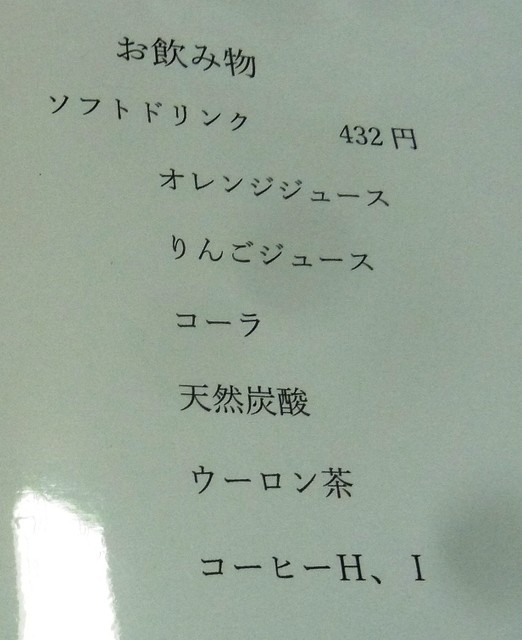 お飲み物
ソフトドリンク 432円
オレンジジュース
りんごジュース
コーラ
天然炭酸
ウーロン茶
コーヒーH、I